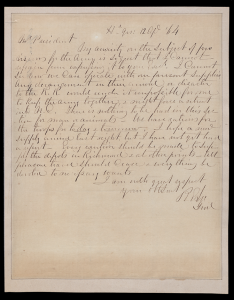 Hd Qrs
64
Mr President
My anxiety on the subject of pro
visions for the Army is so great that I cannot
refrain from expressing it to Your Excy. I cannot
see how we can operate with our present supplies
Any derangement in their arrival or disaster
to the R.R. would render it impossible for me
to keep the Army together, & might force a retreat
into N.C. There is nothing to be had in this sec
tion for men or animals. We have rations for
the troops
supply arriving last night but I have not yet
a report. Every exertion should be made to
the depots in Richmond & at other points. All
should be
devoted to
I am with great respect
your
R E Lee
Genl